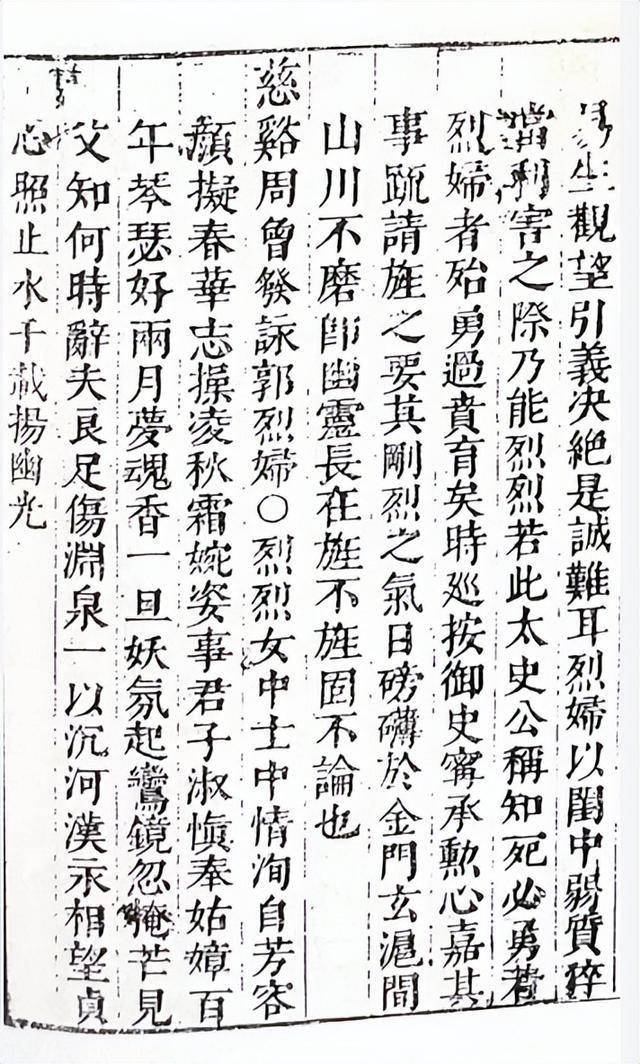 易生觀望引義决絶是誠難耳烈婦以閨中弱質猝
當利害之際乃能烈烈若此太史公稱知死必勇若
烈婦者殆勇過賁育矣時廵按御史甯承勲心嘉其
事䟽請旌之要其剛烈之氣日磅礴於金門玄滬間
山川不磨卽幽靈長在旌不旌固不論也
慈谿周曾發詠郭烈婦○烈烈女中士中情洵自芳容
顔擬春華志操凌秋霜婉姿事君子淑愼奉姑嫜百
年琴瑟好兩月夢魂香一旦妖氛起鸞鏡忽掩芒見
父知何時辭夫良足傷淵泉一以沉河漢永相望貞
心照止水千載揚幽光